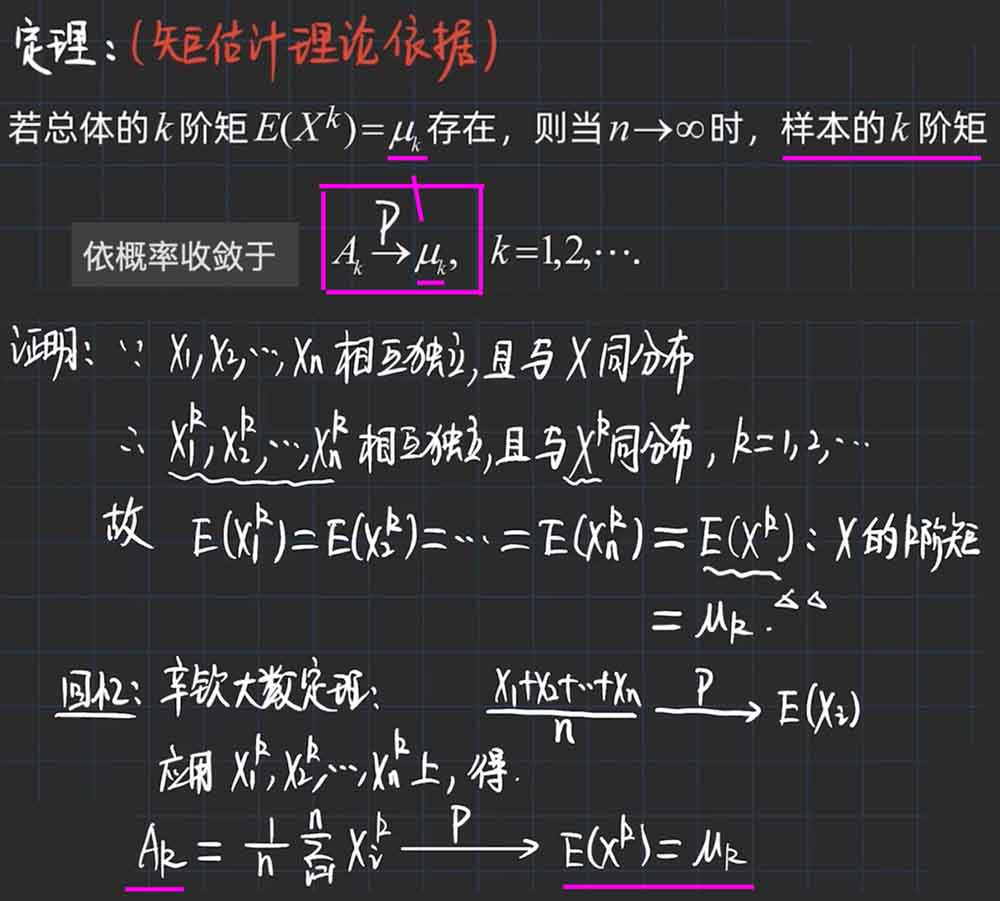 定理：(矩估计理论依据)
若总体的k阶矩E(X^k)=μ_k存在，则当n→∞时，样本的k阶矩
依概率收敛于 A_k →^P μ_k, k=1,2,⋯.
证明：∵ X₁,X₂,⋯,Xn 相互独立,且与X同分布
∴ X₁^k,X₂^k,⋯,Xn^k 相互独立,且与X^k同分布，k=1,2,⋯
故 E(X₁^k)=E(X₂^k)=⋯=E(Xn^k)=E(X^k)：X的k阶矩
=μ_k.
回忆：辛钦大数定理： (X₁+X₂+⋯+Xn)/n →^P E(X_i)
应用 X₁^k,X₂^k,⋯,Xn^k 上，得.
A_k = 1/n ∑_{i=1}^n X_i^k →^P E(X^k)=μ_k